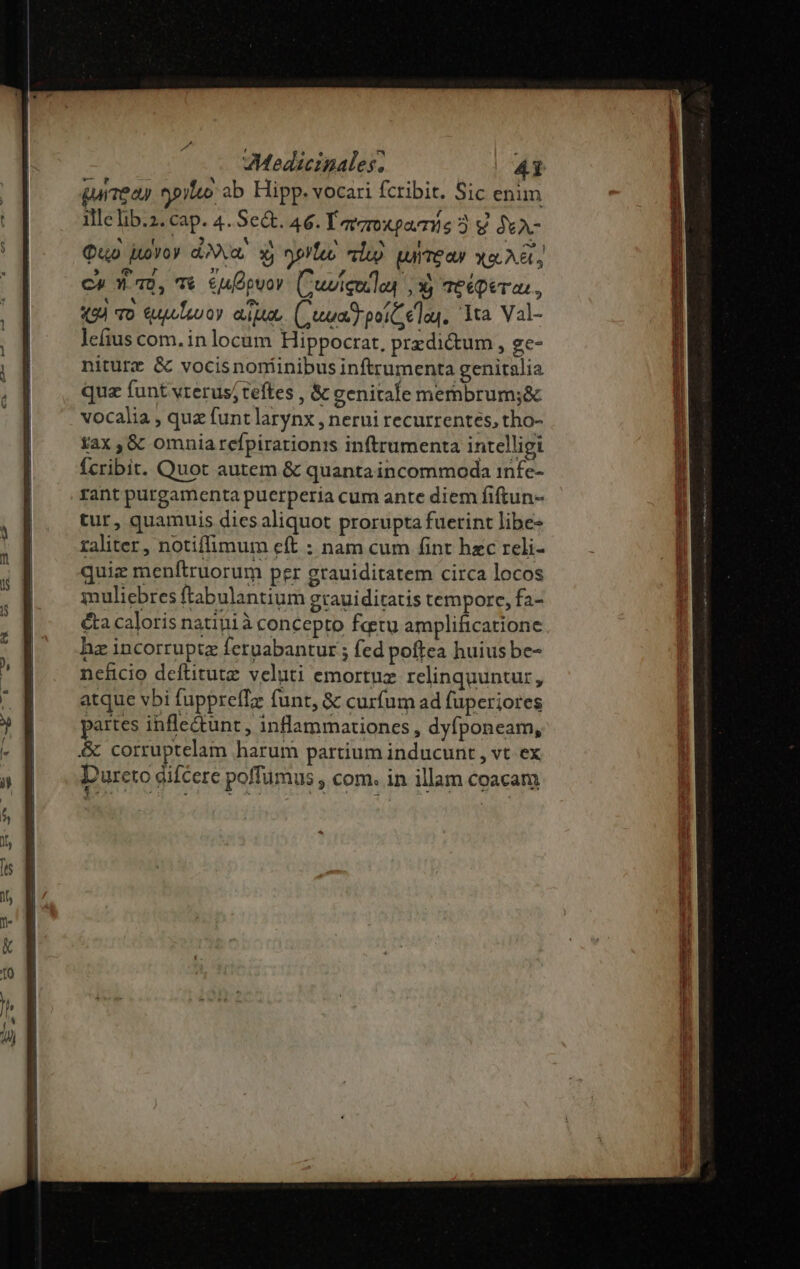 Medicinales. 41
μήτραν γονὴν ab Hipp. vocari ſcribit. Sic enim
ille lib.2. cap. 4. Sect. 46. Ἱπποκράτης ὃ οὐ δελ-
φὺν μόνον ἀλλὰ καὶ γονὴν τὴν μήτραν καλεῖ,
ἐν ᾗ τό, τε ἔμβρυον συνίσταται, καὶ τρέφεται,
καὶ τὸ ἔμμηνον αἷμα συναθροίζεται. Ita Val-
leſius com. in locum Hippocrat. prædictum, ge-
nituræ & vocis nominibus inſtrumenta genitalia
quæ ſunt vterus, teſtes, & genitale membrum; &
vocalia, quæ ſunt larynx, nerui recurrentes, tho-
rax, & omnia reſpirationis inſtrumenta intelligi
ſcribit. Quot autem & quanta incommoda infe-
rant purgamenta puerperia cum ante diem ſiſtun-
tur, quamuis dies aliquot prorupta fuerint libe-
raliter, notiſſimum eſt : nam cum ſint hæc reli-
quiæ menſtruorum per grauiditatem circa locos
muliebres ſtabulantium grauiditatis tempore, fa-
cta caloris natiui à concepto fœtu amplificatione
hæ incorruptæ ſeruabantur ; ſed poſtea huius be-
neficio deſtitutæ veluti emortuæ relinquuntur,
atque vbi ſuppreſſæ ſunt, & curſum ad ſuperiores
partes inflectunt, inflammationes, dyſpnœam,
& corruptelam harum partium inducunt, vt ex
Dureto diſcere poſſumus, com. in illam coacam